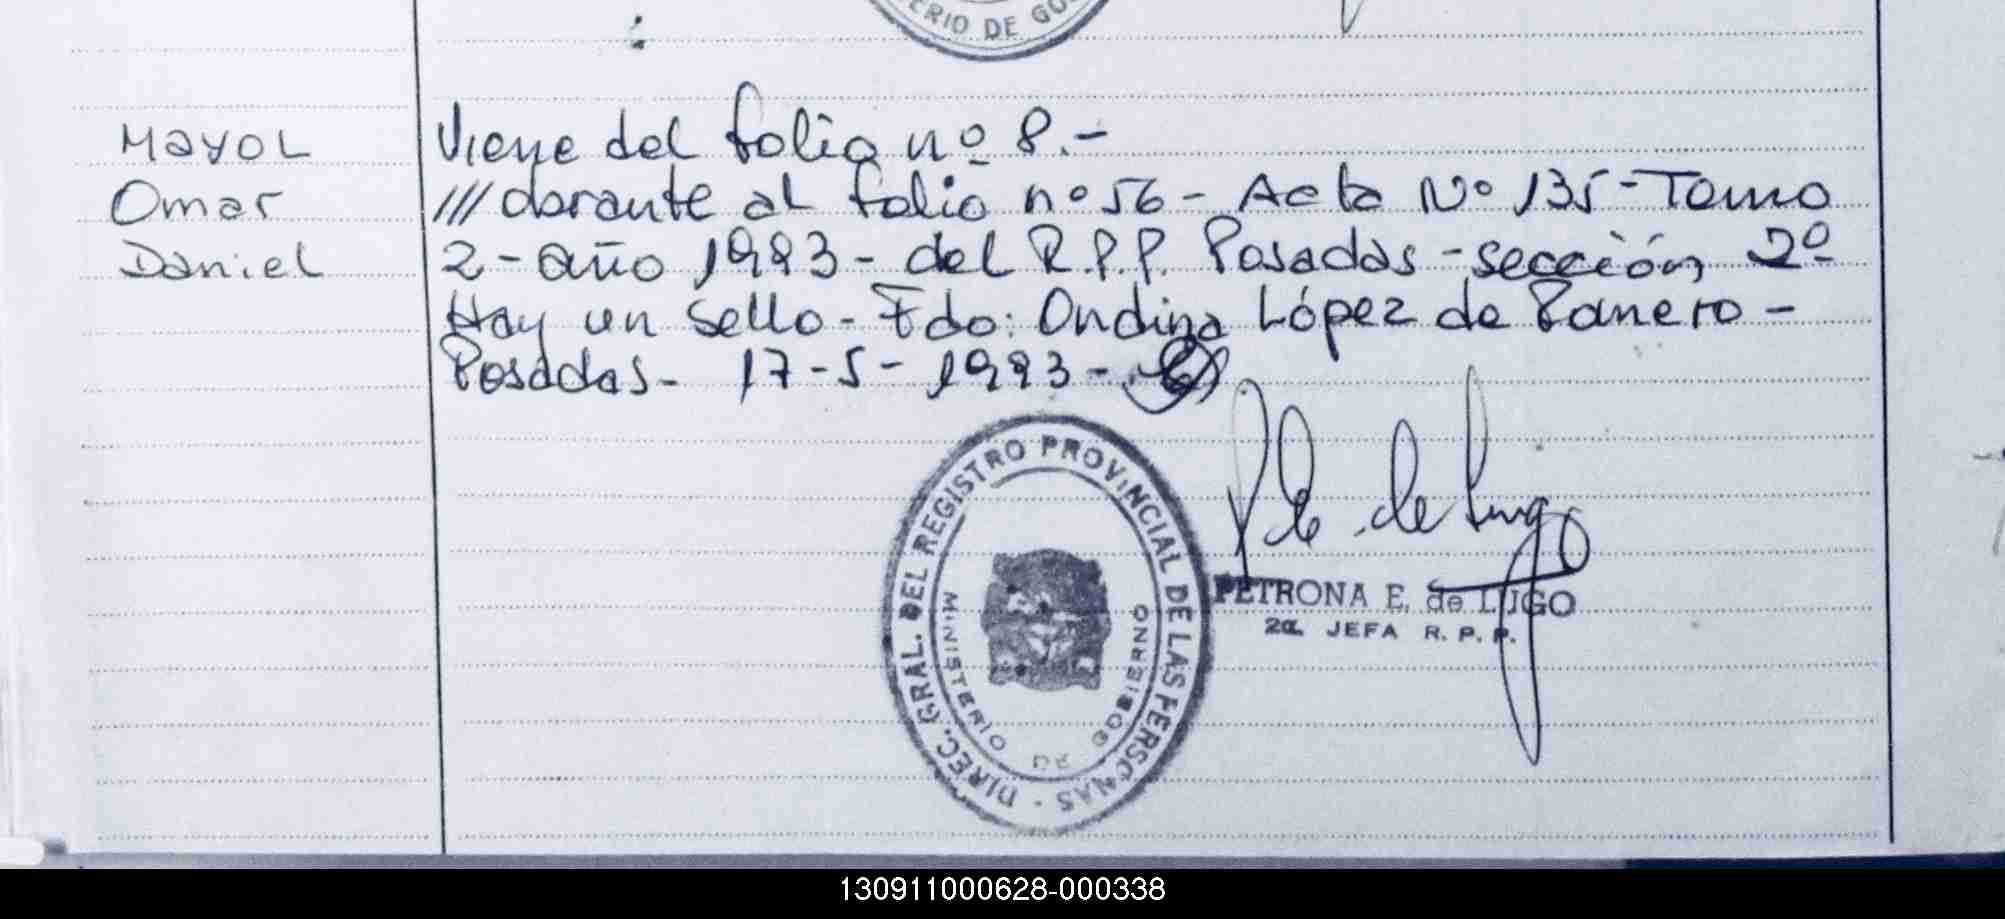 MINISTERIO DE GO
Mayol
Omar
Daniel
Viene del folio nº 8.-
///dorante al folio nº 56 - Acta Nº 135 - Tomo
2 - año 1993 - del R.P.P. Posadas - sección 2º
Hay un sello - Fdo: Ondina López de Panero -
Posadas - 17-5-1993-
DIREC. GRAL. DEL REGISTRO PROVINCIAL DE LAS PERSONAS -
MINISTERIO DE GOBIERNO
P E de Lugo
PETRONA E. de LUGO
2a. JEFA R. P. P.
130911000628-000338